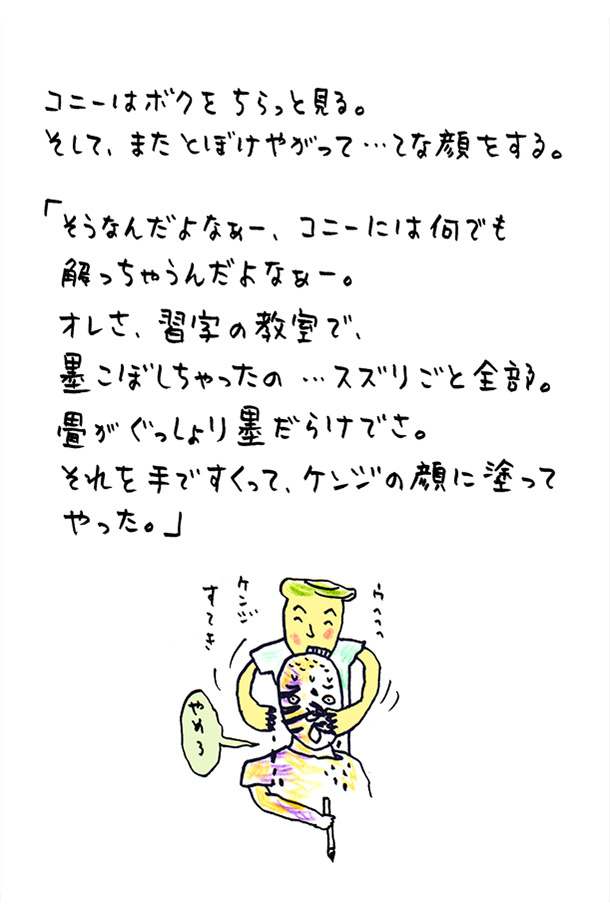 コニーはボクをちらっと見る。
そして、またとぼけやがって…てな顔をする。
「そうなんだよなぁー、コニーには何でも
解っちゃうんだよなぁー。
オレさ、習字の教室で、
墨こぼしちゃったの…スズリごと全部。
畳がぐっしょり墨だらけでさ。
それを手ですくって、ケンジの顔に塗って
やった。」
ウヘヘヘ
ケンジ
すてき
やめろ